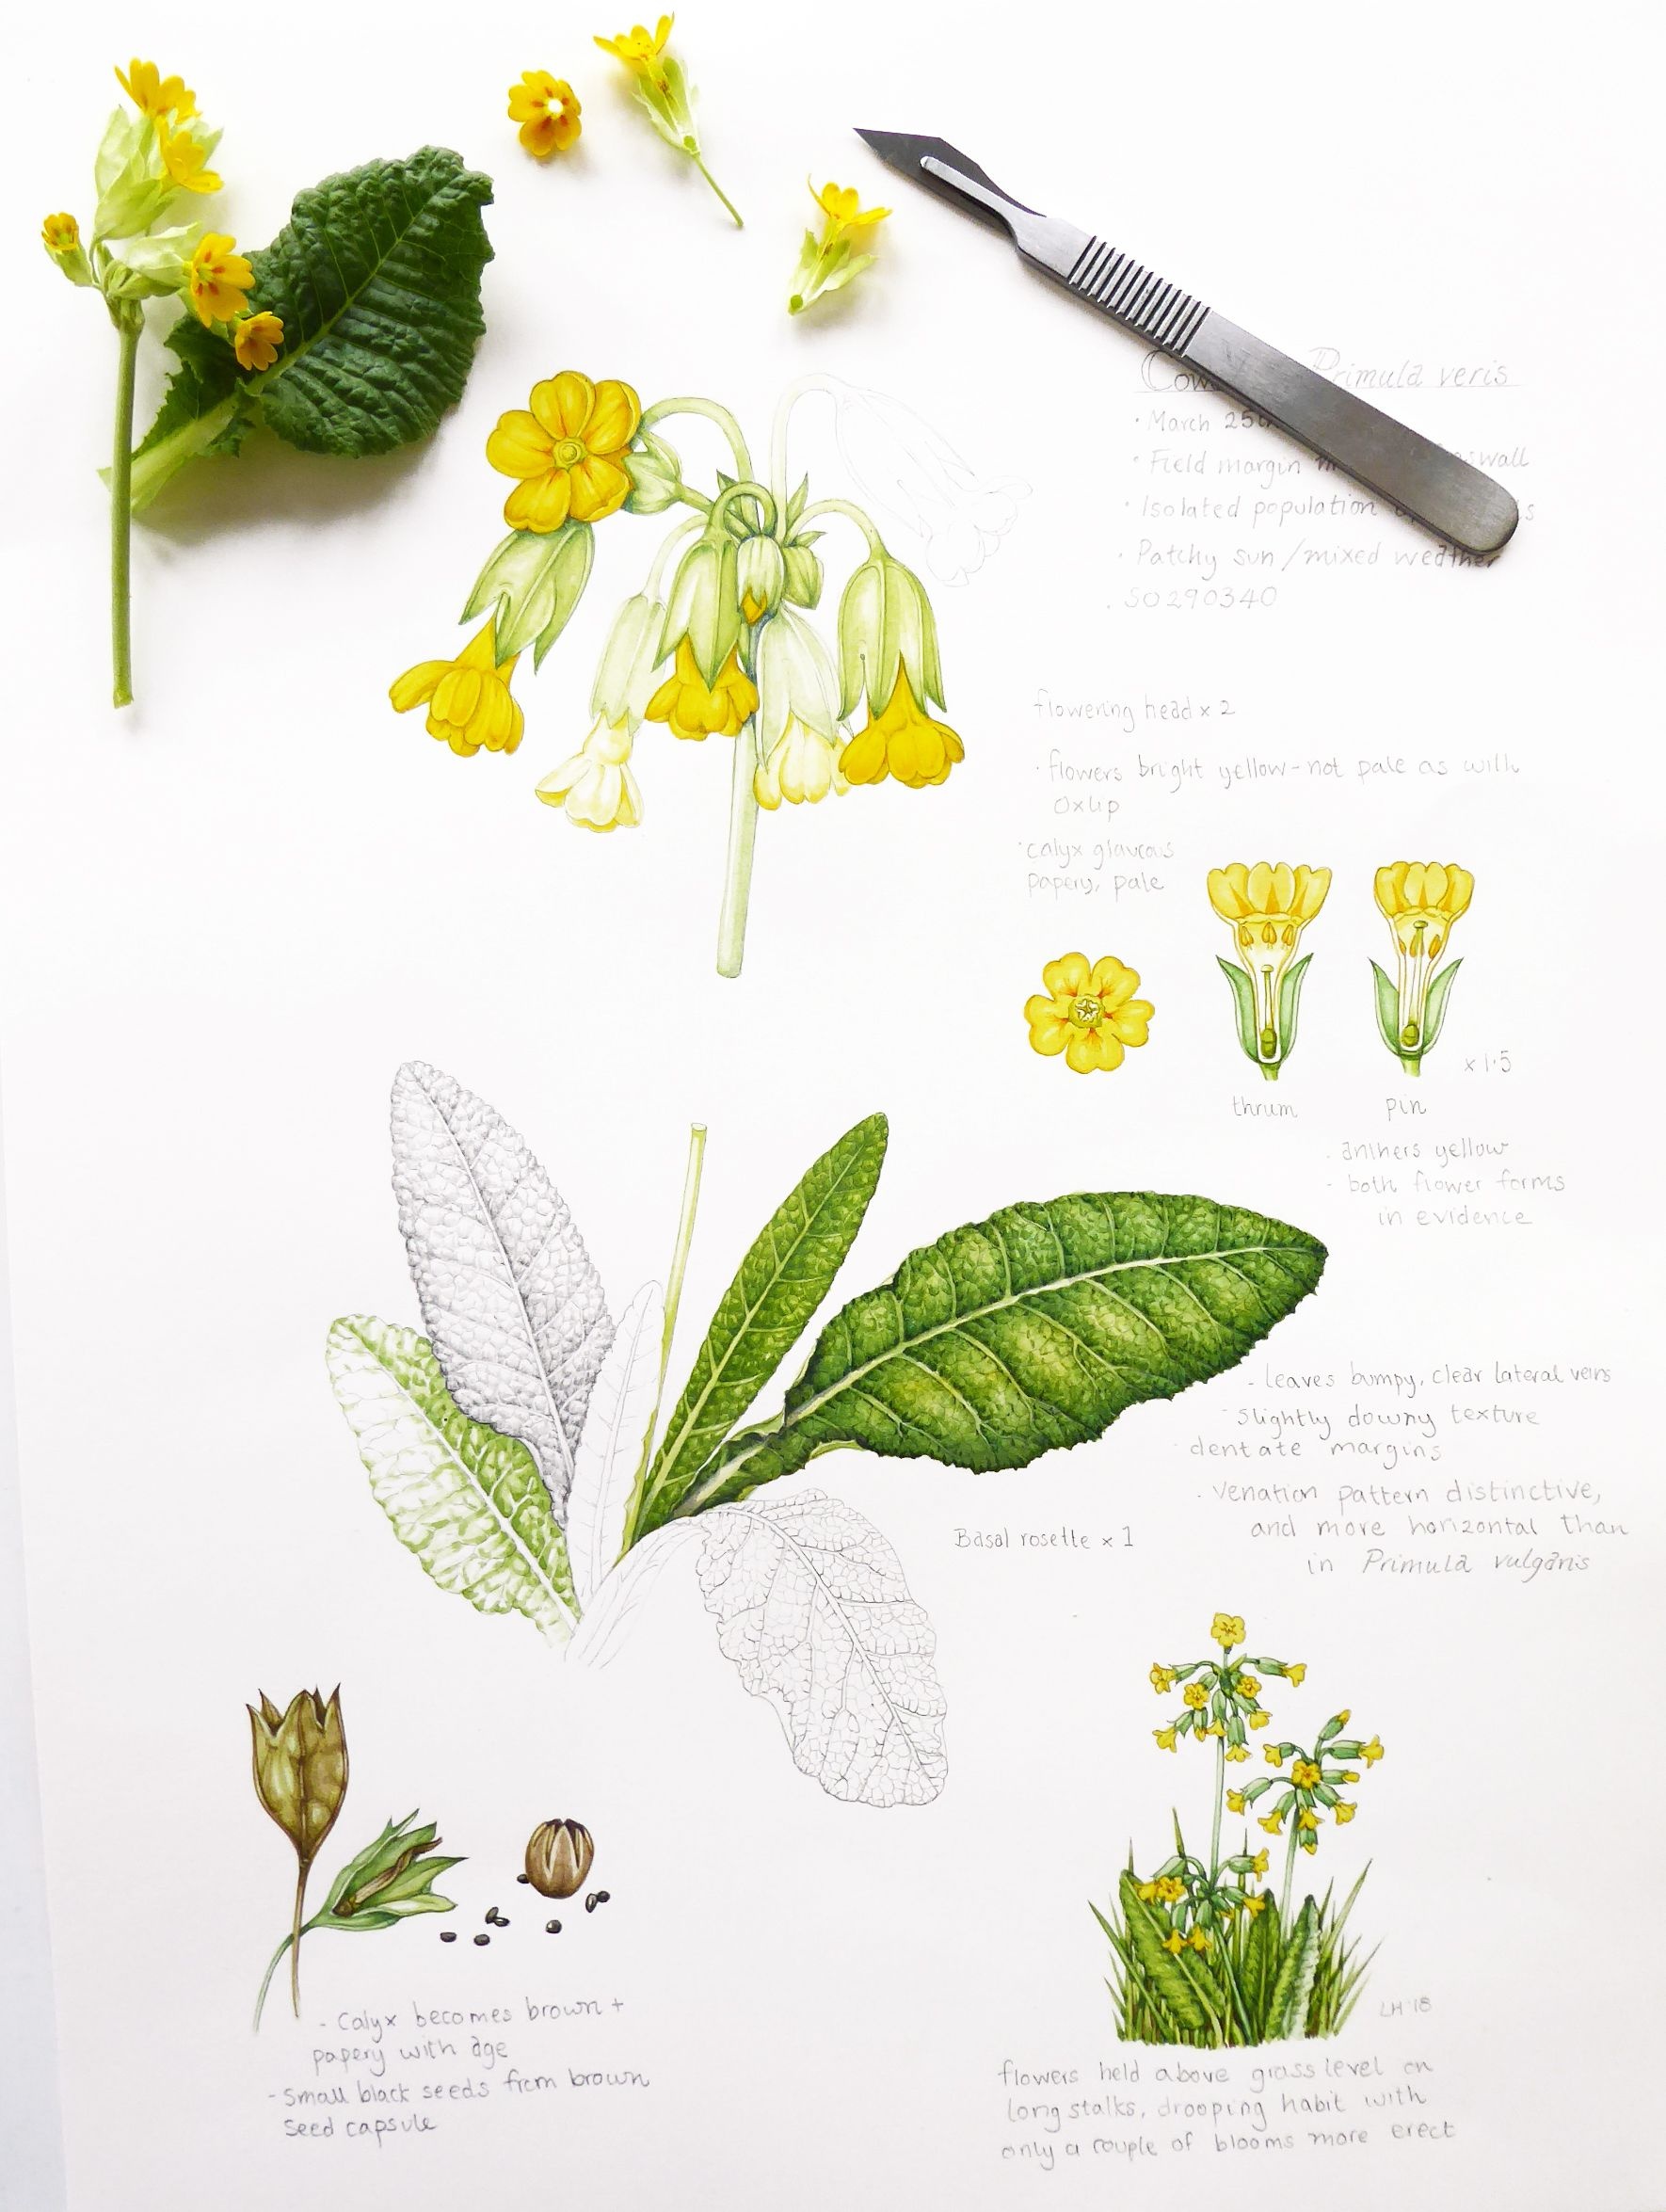 Primula veris
· March 25th
· Field margin
· Isolated population
· Patchy sun / mixed weather
. SO290340
flowering head x 2
· flowers bright yellow - not pale as with
oxlip
· calyx glaucous
papery, pale
x 1·5
thrum pin
- anthers yellow
- both flower forms
in evidence
- leaves bumpy, clear lateral veins
- Slightly downy texture
dentate margins
· Venation pattern distinctive,
and more horizontal than
in Primula vulgaris
Basal rosette x 1
LH '18
- Calyx becomes brown +
papery with age
- Small black seeds from brown
seed capsule
flowers held above grass level on
long stalks, drooping habit with
only a couple of blooms more erect